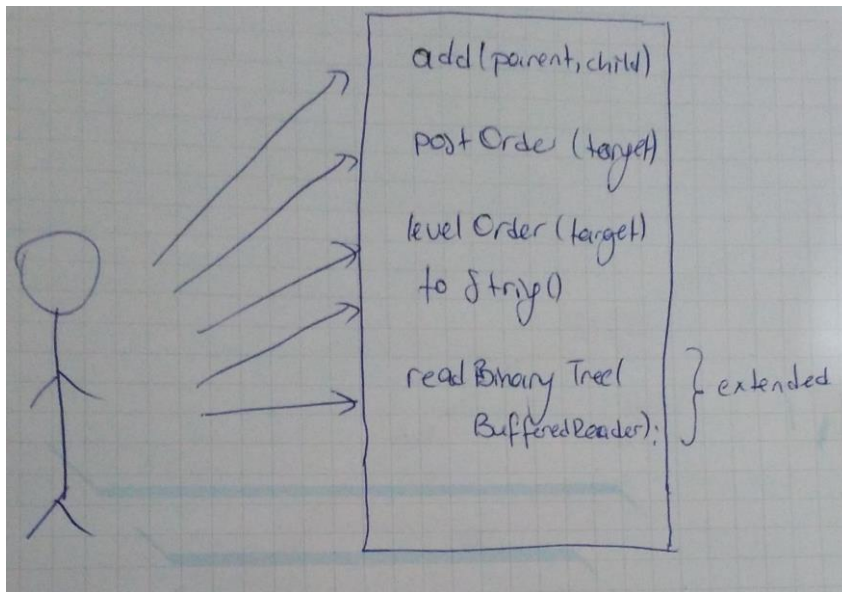 add(parent,child)
postOrder (target)
levelOrder (target)
to String()
readBinary Tree(
BufferedReader);
extended